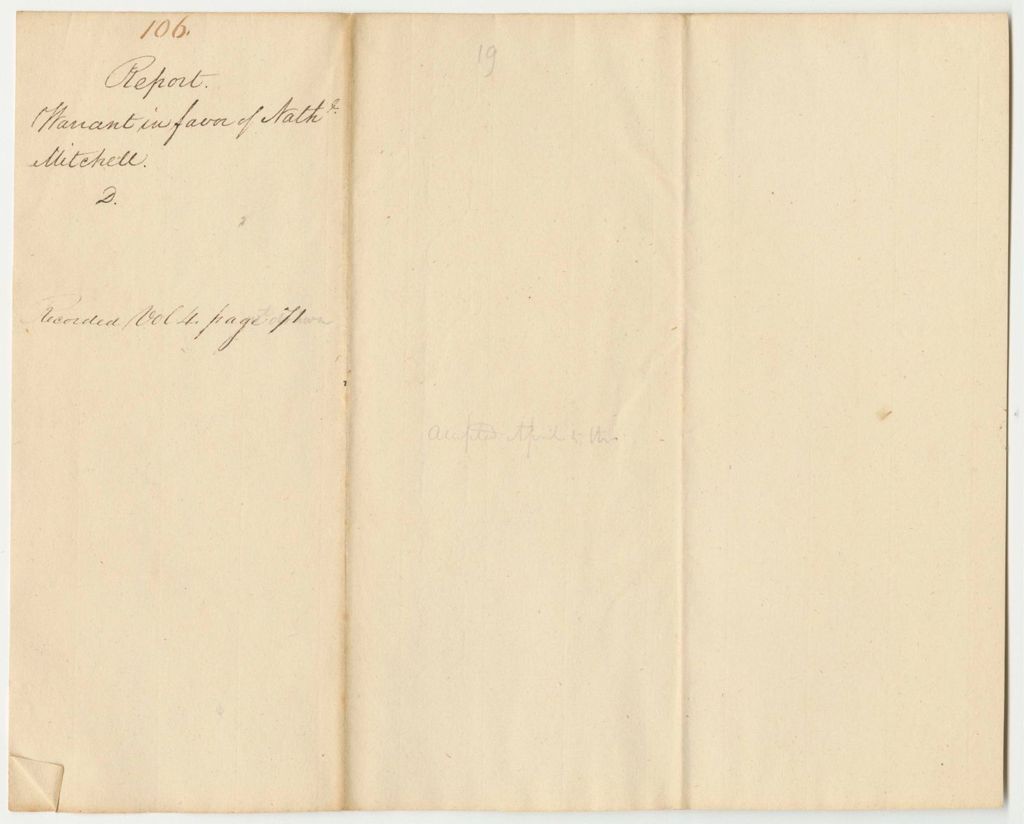 106.
Report.
Warrant in favor of Nath^l.
Mitchell.
D.
Recorded Vol 4. page 71
19
accepted April 5th